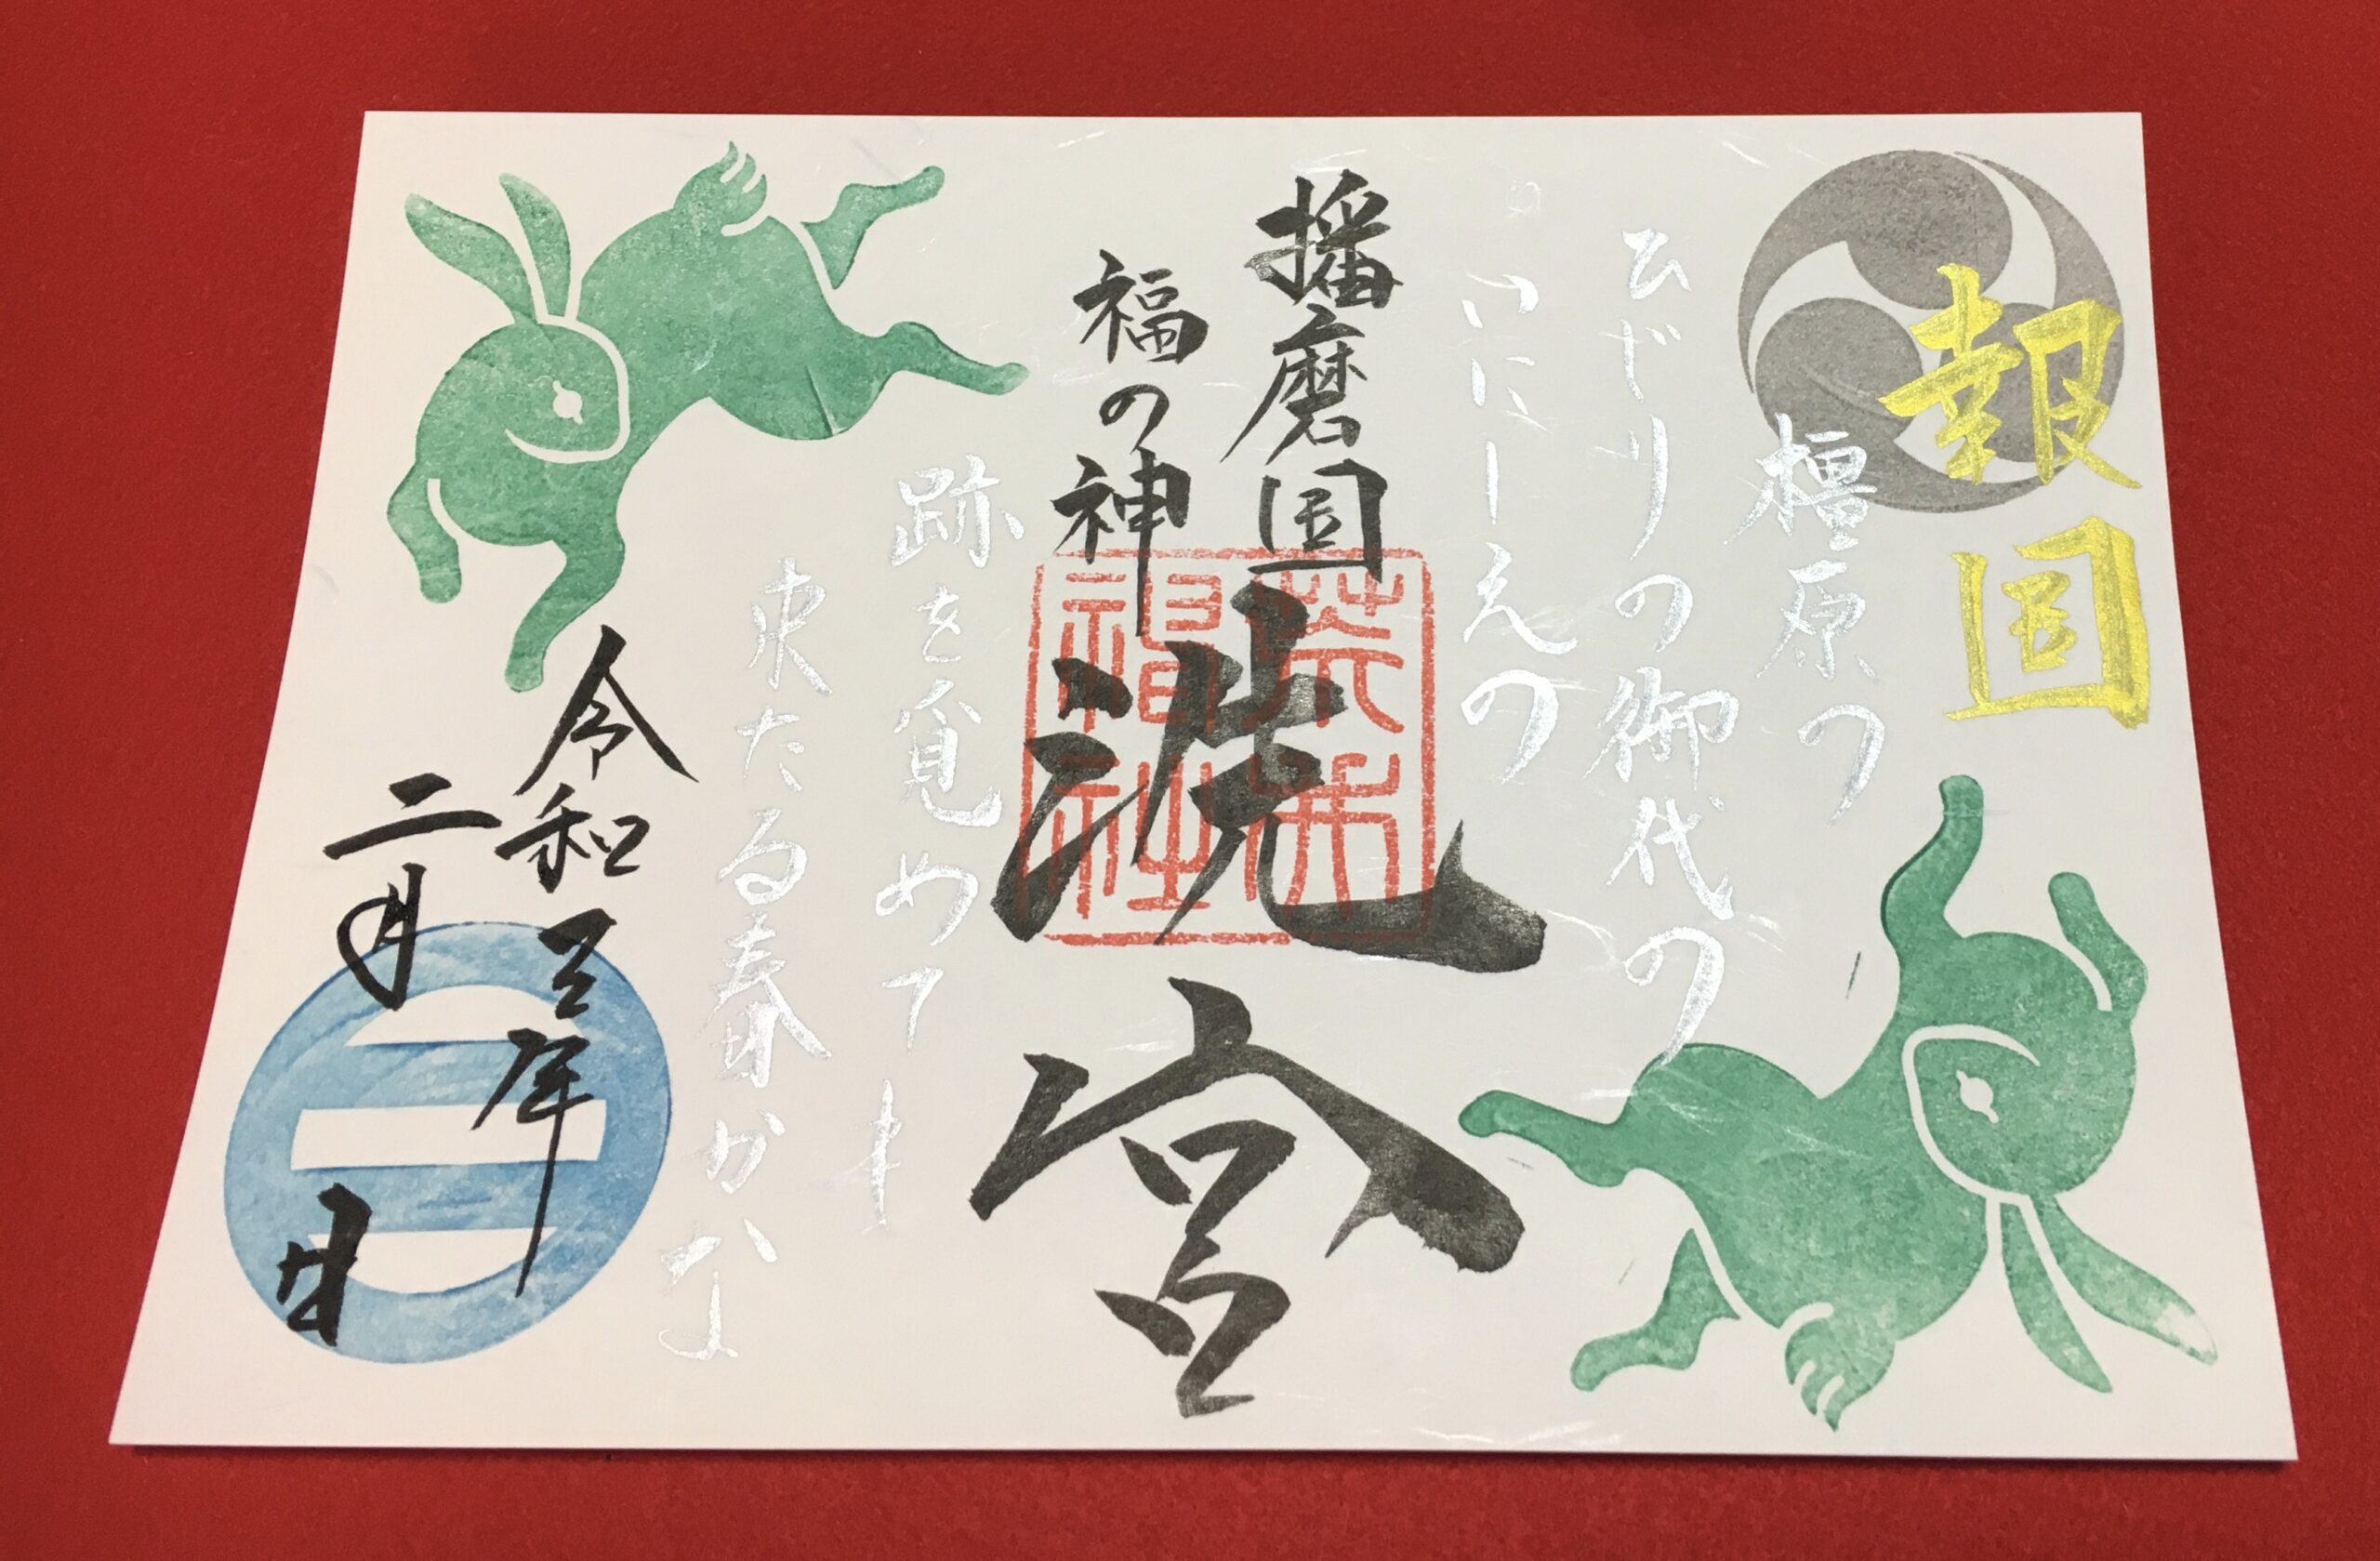 報国
橿原の
ひじりの御代の
いにしえの
播磨国
福の神
洗宮
荒井神社
跡を覓めてし
来たる春かな
令和五年
二月 日